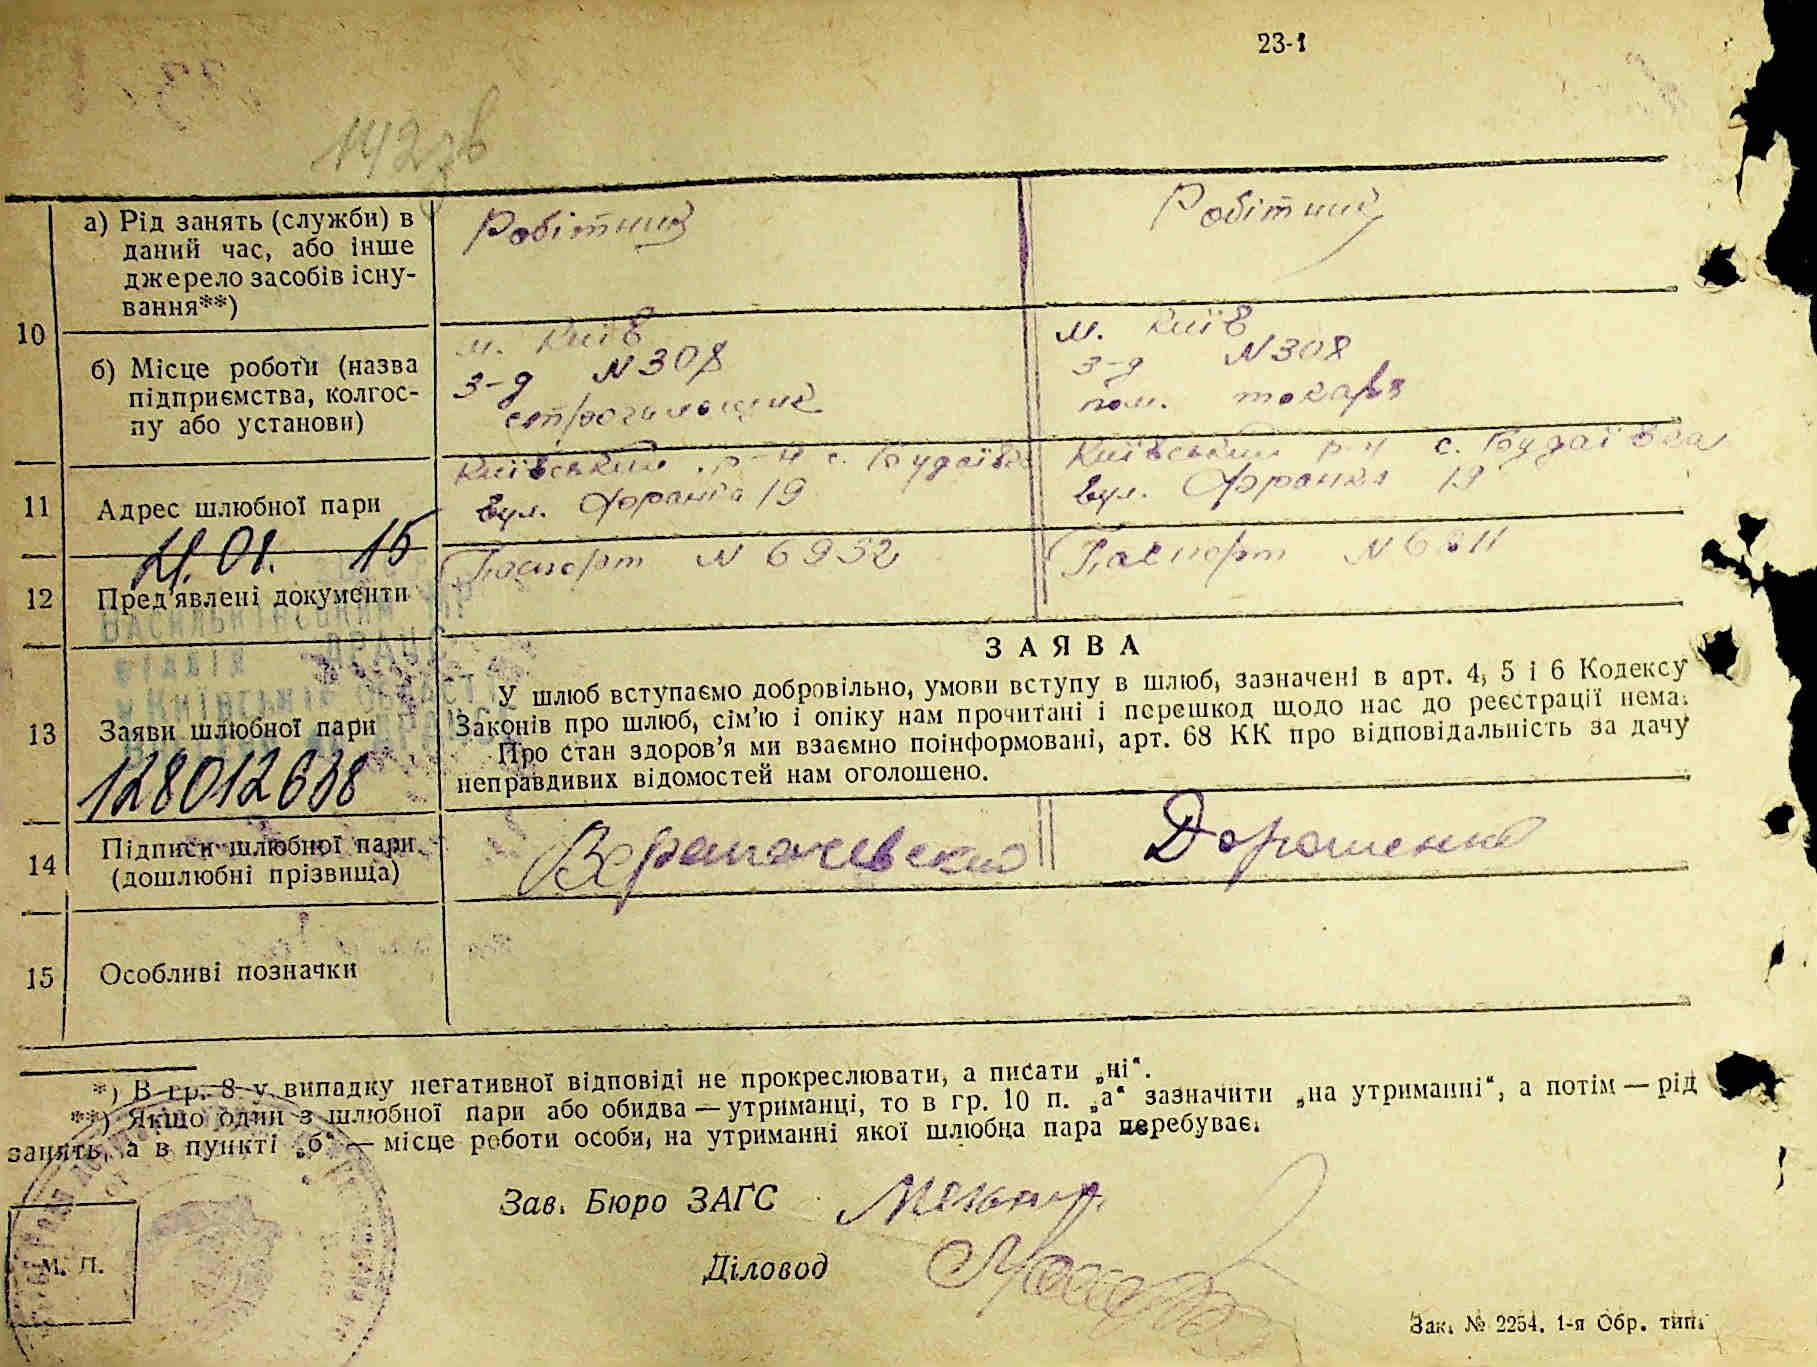 23-1
142зв
10
а) Рід занять (служби) в
даний час, або інше
джерело засобів існу-
вання**)
Робітник
Робітниц
б) Місце роботи (назва
підприємства, колгос-
пу або установи)
м. Київ
з-д N 308
м. Київ
з-д N 308
пом. токаря
11
Адрес шлюбної пари
Київський р-н с. Будаївка
вул. Франка 19
Київський р-н с. Будаївка
вул. Франка 19
21.01. 15
12
Пред'явлені документи
Паспорт N 6932
Паспорт N
ВАСИЛЬКІВСЬКИЙ
відділ ДРАЦС
у Київській області
13
Заяви шлюбної пари
128012638
ЗАЯВА
У шлюб вступаємо добровільно, умови вступу в шлюб, зазначені в арт. 4, 5 і 6 Кодексу
Законів про шлюб, сім'ю і опіку нам прочитані і перешкод щодо нас до реєстрації нема.
Про стан здоров'я ми взаємно поінформовані, арт. 68 КК про відповідальність за дачу
неправдивих відомостей нам оголошено.
14
Підписи шлюбної пари
(дошлюбні прізвища)
Дорошенко
15
Особливі позначки
*) В гр. 8 у випадку негативної відповіді не прокреслювати, а писати „ні“.
**) Якщо один з шлюбної пари або обидва — утриманці, то в гр. 10 п. „а“ зазначити „на утриманні“, а потім — рід
занять, а в пункті „б“ — місце роботи особи, на утриманні якої шлюбна пара перебуває.
Зав. Бюро ЗАГС
Діловод
М. П.
Зак. № 2254. 1-я Обр. тип.